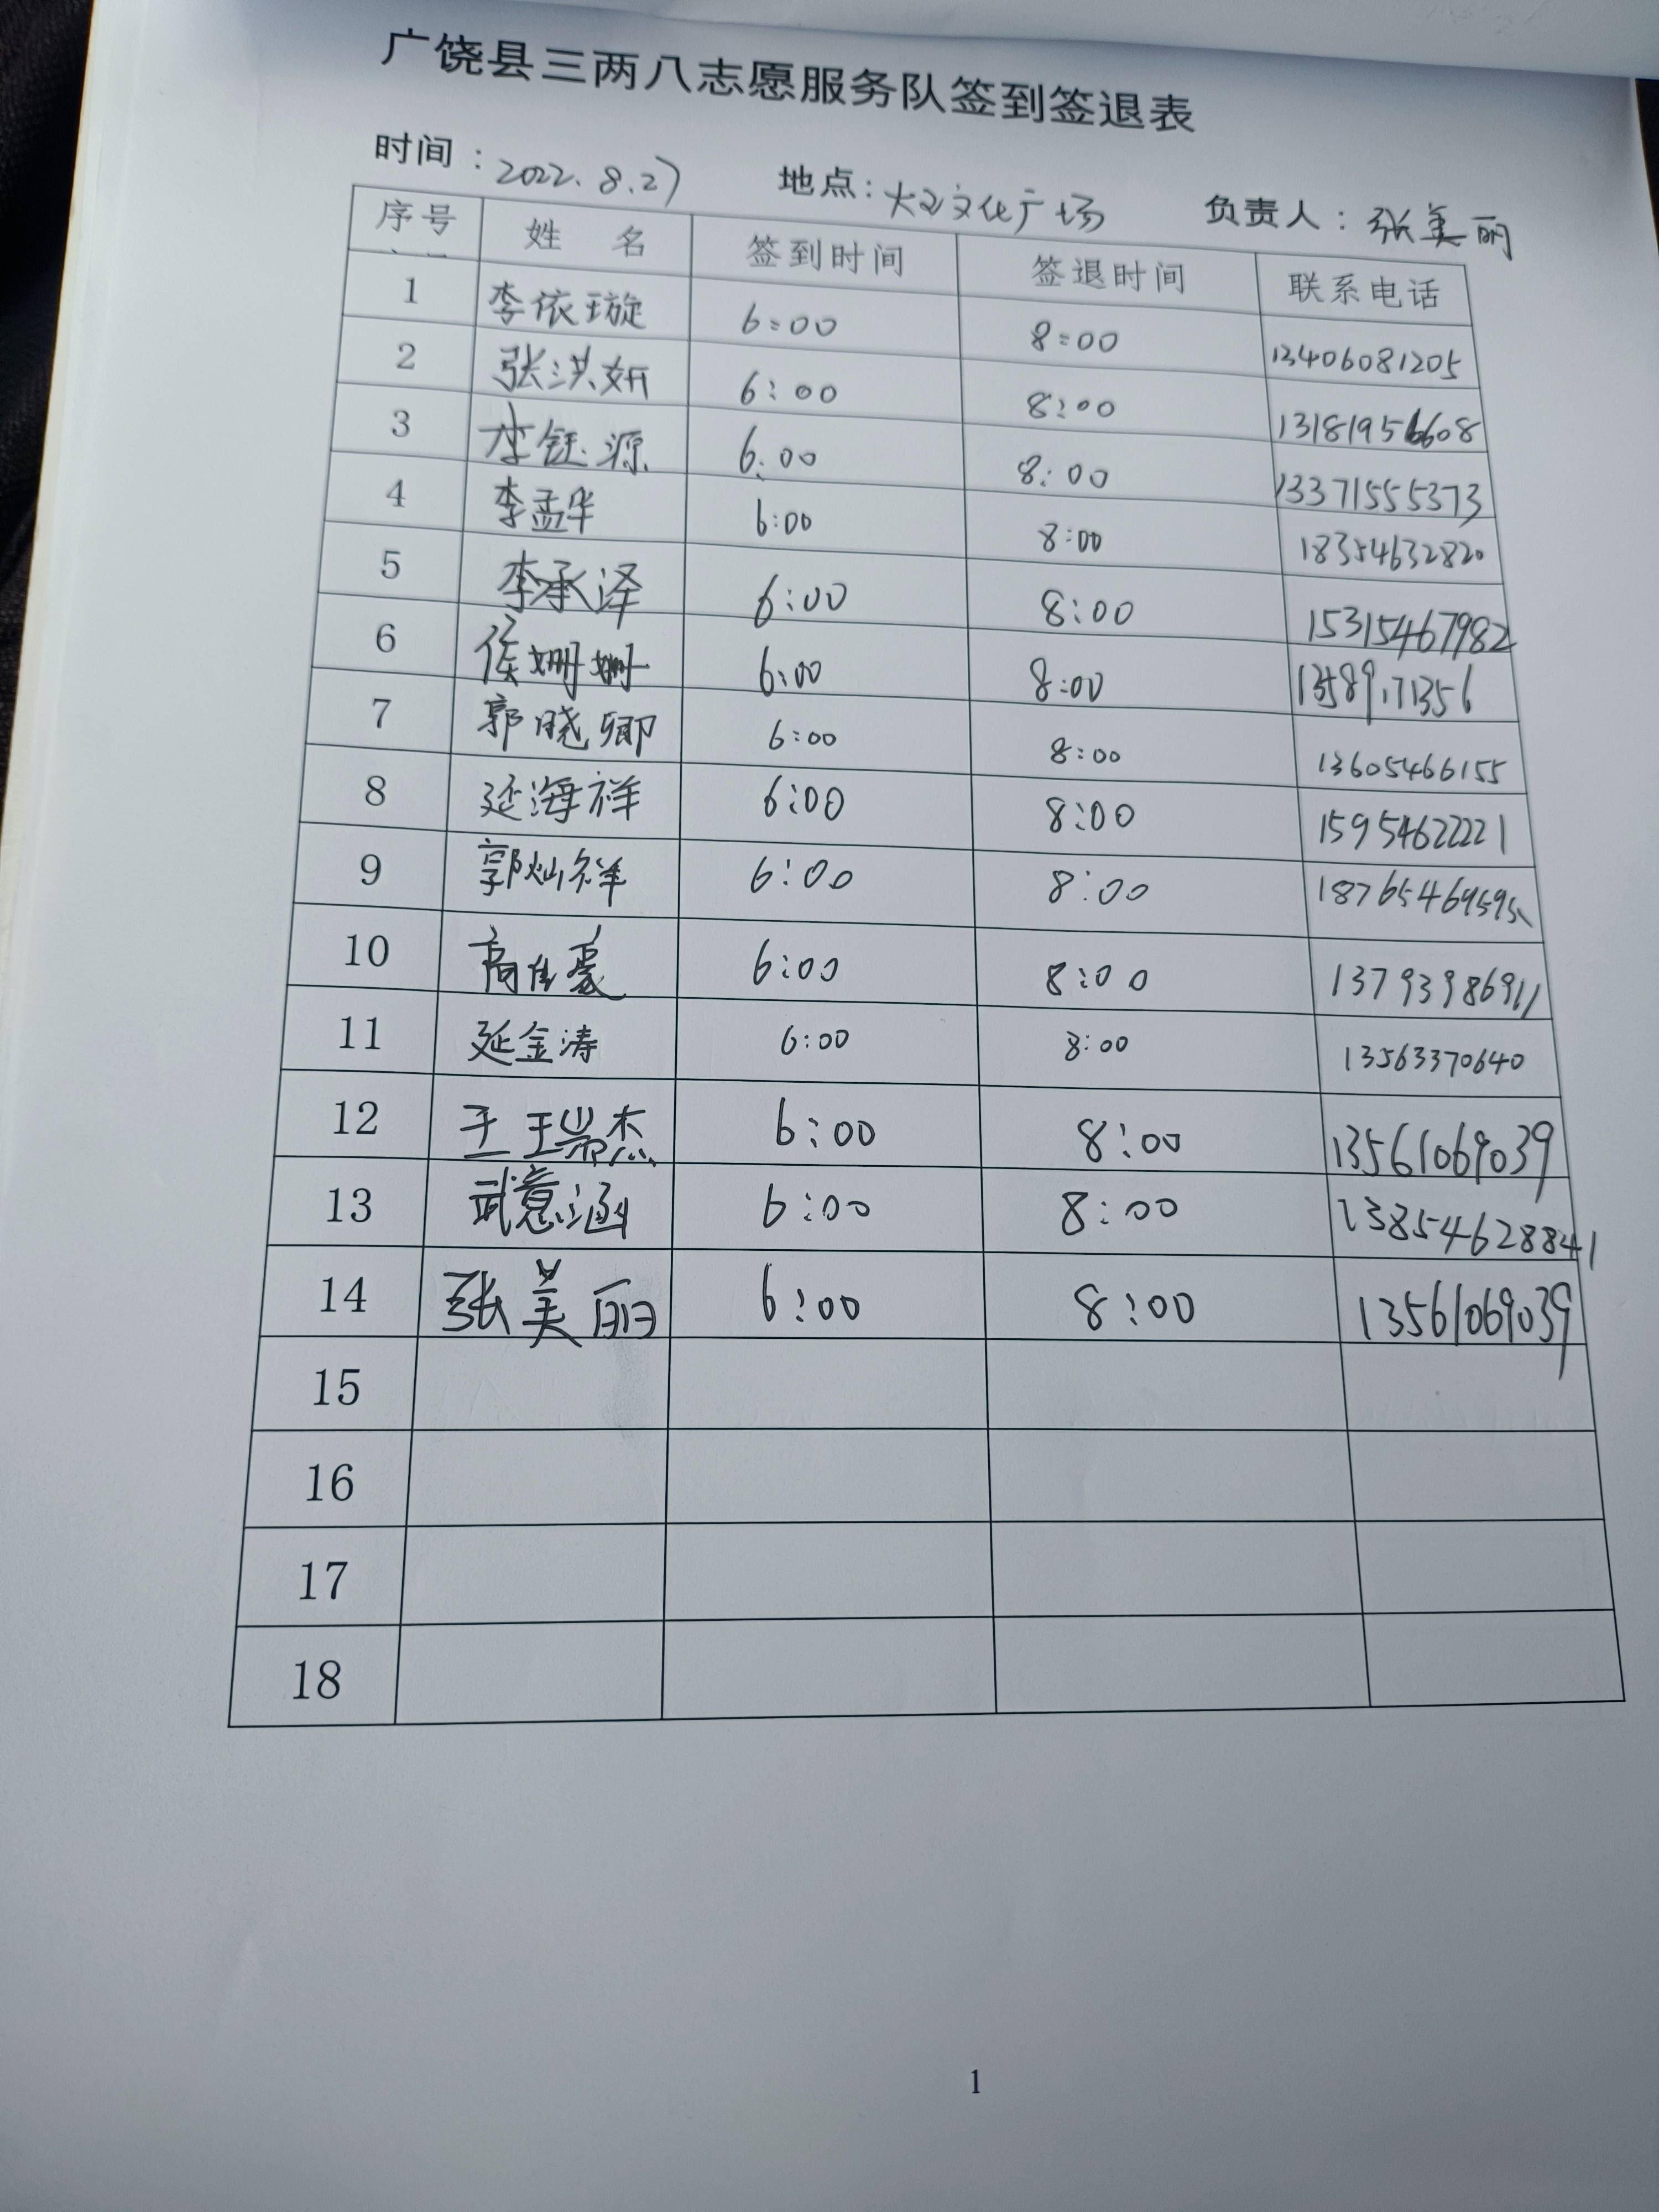 广饶县三两八志愿服务队签到签退表
时间：2022.8.27 地点：大王文化广场 负责人：张美丽
序号 姓 名 签到时间 签退时间 联系电话
1 李依璇 6:00 8:00 13406081205
2 张洪妍 6:00 8:00 13181956608
3 李钰源 6:00 8:00 13371555373
4 李孟华 6:00 8:00 18354632820
5 李承泽 6:00 8:00 15315467982
6 侯姗姗 6:00 8:00 13589171356
7 郭晓卿 6:00 8:00 13605466155
8 延海祥 6:00 8:00 15954622221
9 郭灿祥 6:00 8:00
10 高佳豪 6:00 8:00 13793986911
11 延金涛 6:00 8:00 13563370640
12 王瑞杰 6:00 8:00 13561069039
13 武意涵 6:00 8:00 13854628841
14 张美丽 6:00 8:00 13561069039
15
16
17
18
1